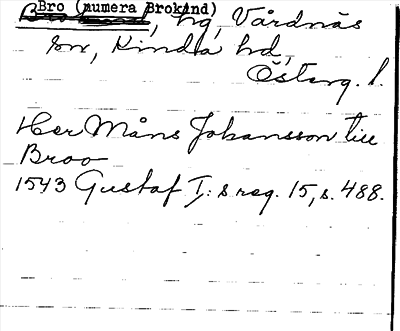 Bro (numera Brokind)
, hg, Vårdnäs
sn, Kinda hd,
Österg. l.
Her Måns Johansson till
Broo
1543 Gustaf I: s reg. 15, s. 488.